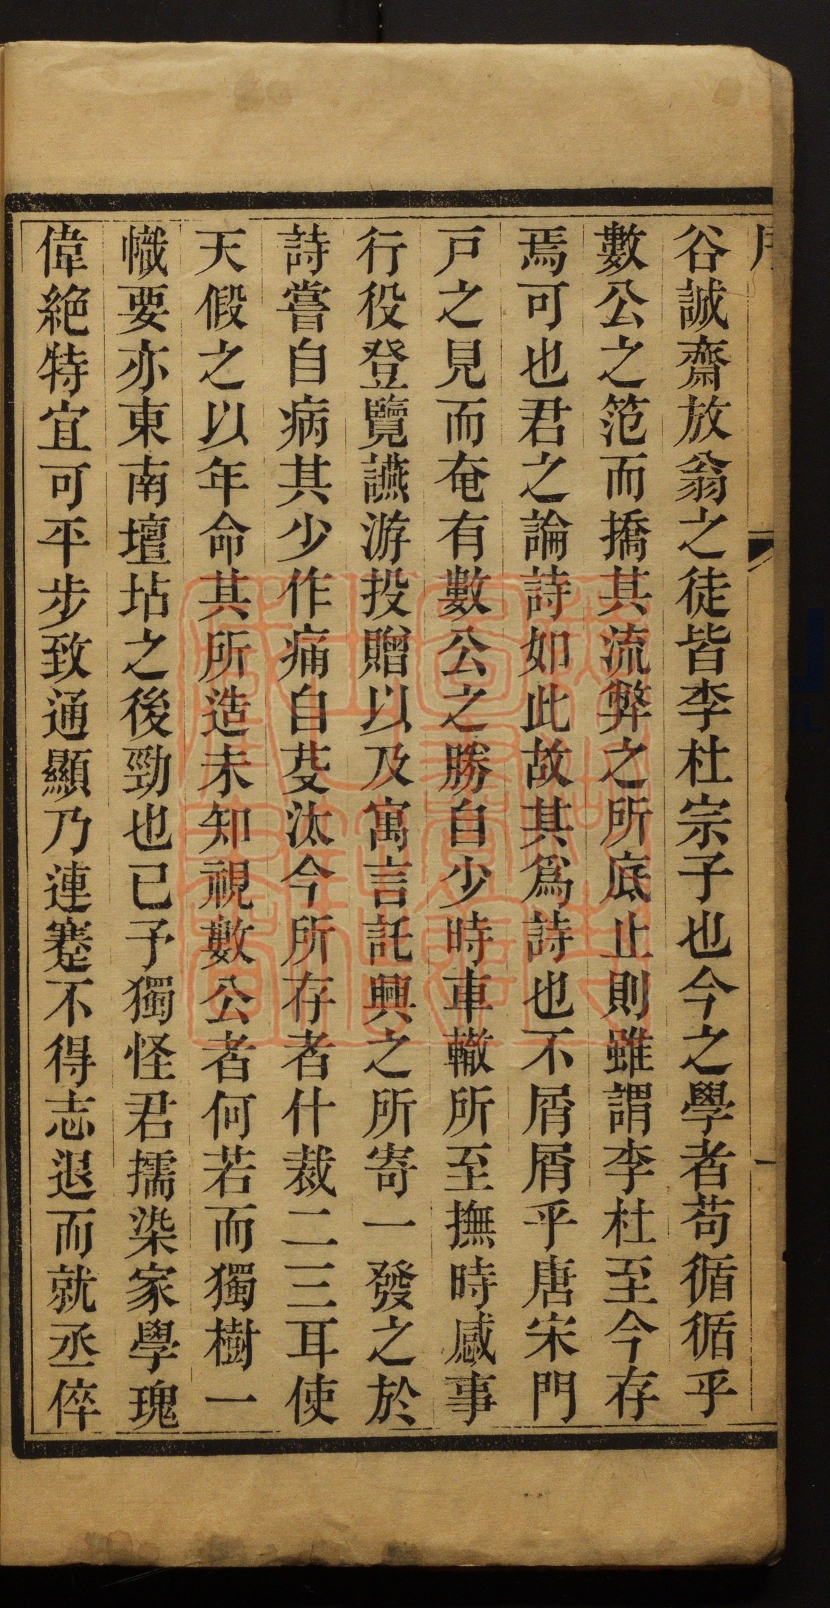 谷誠齋放翁之徒皆李杜宗子也今之學者苟循循乎
數公之笵而撟其流弊之所底止則雖謂李杜至今存
焉可也君之論詩如此故其爲詩也不屑屑乎唐宋門
戸之見而奄有數公之勝自少時車轍所至撫時感事
行役登覽讌游投贈以及寓言託興之所寄一發之於
詩嘗自病其少作痛自芟汰今所存者什裁二三耳使
天假之以年命其所造未知視數公者何若而獨樹一
幟要亦東南壇坫之後勁也已予獨怪君擩染家學瑰
偉絶特宜可平步致通顯乃連蹇不得志退而就丞倅